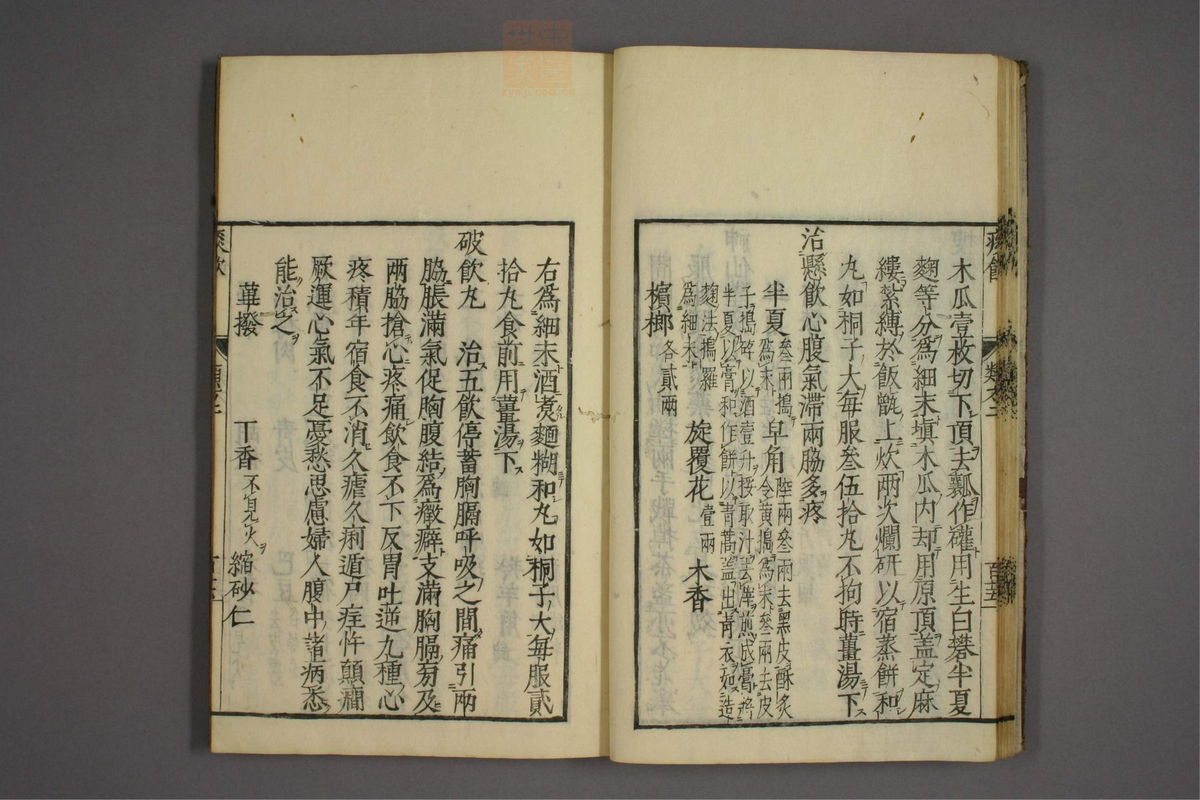 木瓜壹枚切下頂去瓤作礶用生白礬半夏
麴等分爲細末填木瓜内却用原頂盖定麻
縷紮縛於飯甑上炊兩次爛研以宿蒸餅和
丸如桐子大每服叄伍拾丸不拘時薑湯下
治懸飲心腹氣滯兩脇多疼
半夏叄兩搗爲末 皁角陸兩叄兩去黑皮酥炙
令黄搗爲末叄兩去皮
子搗碎以酒壹升挼取汁去滓煎成膏將
半夏以膏和作餅以青蒿盖出青衣如造
麴法搗羅
爲細末 旋覆花壹兩 木香
檳榔各貳兩
右爲細末酒煮麵糊和丸如桐子大每服貳
拾丸食前用薑湯下
破飲丸 治五飲停蓄胸膈呼吸之間痛引兩
脇脹滿氣促胸腹結爲癥癖支滿胸膈旁及
兩脇搶心疼痛飲食不下反胃吐逆九種心
疼積年宿食不消久瘧久痢遁尸疰忤顛癎
厥運心氣不足憂愁思慮婦人腹中諸病悉
能治之
蓽撥 丁香不見火 縮砂仁